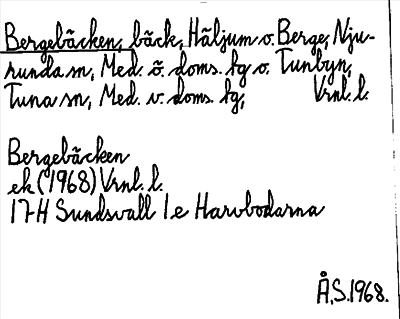 Bergebäcken, bäck, Häljum o. Berge, Nju-
runda sn, Med. ö. doms. hg o. Tunbyn,
Tuna sn, Med. v. doms. hg, Vrnl. l.
Bergebäcken
ek (1968) Vrnl. l.
17H Sundsvall 1e Harvbodarna
Å.S. 1968.